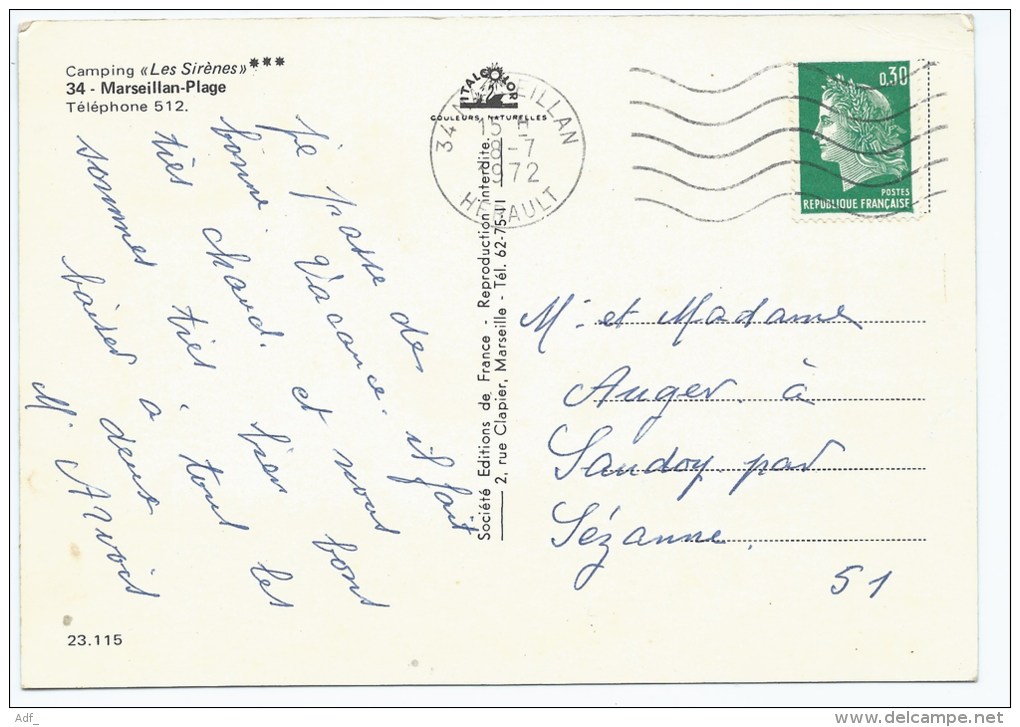 Camping «Les Sirènes» ***
34 - Marseillan-Plage
Téléphone 512.
je passe de
bonne Vacance. il fait
très chaud. et nous
sommes très bien bons
baiser a tout les
deux
M. Arvois
23.115
ITALCOLOR
COULEURS NATURELLES
Société Editions de France - Reproduction interdite.
2, rue Clapier, Marseille - Tél. 62-75-11
34 MARSEILLAN
15 H
8-7
1972
HERAULT
0,30
POSTES
REPUBLIQUE FRANÇAISE
M. et Madame
Auger. à
Saudoy. par
Sézanne.
51
Adf_
www.delcampe.net